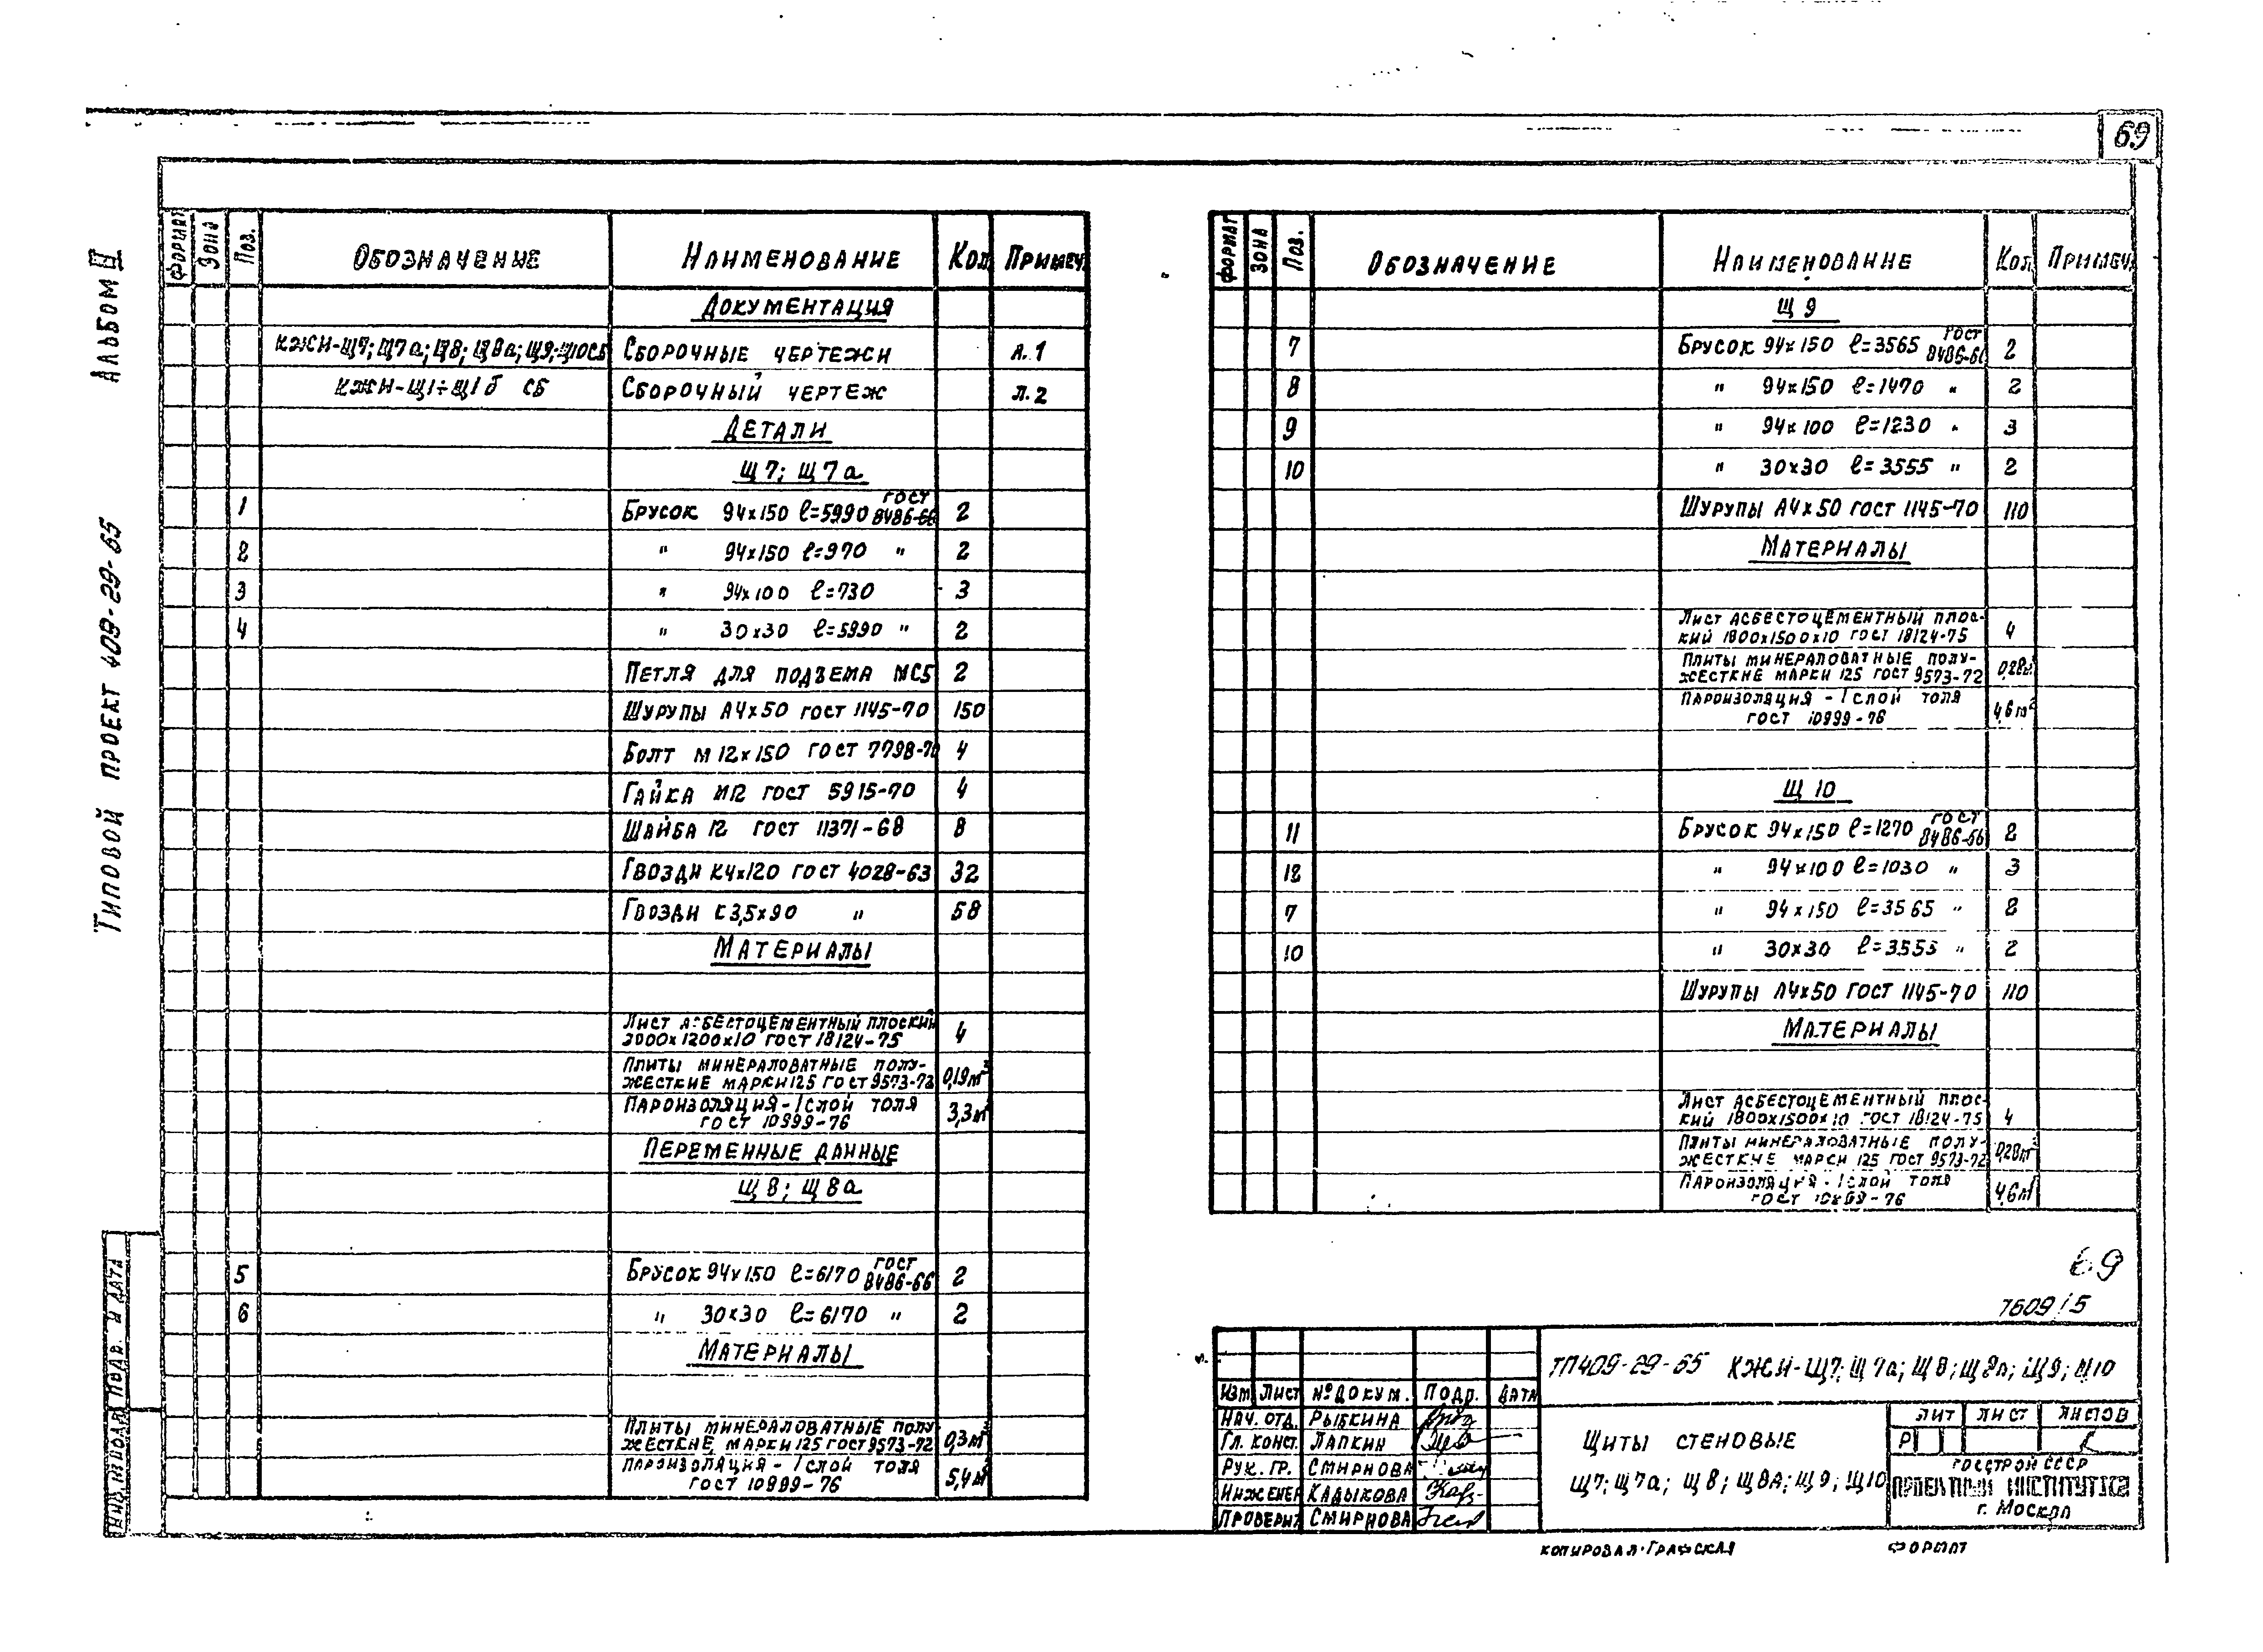 69
Альбом II
Типовой проект 409-29-65
Формат Зона Поз. Обозначение Наименование Кол. Примеч.
Документация
КЖИ-Щ7; Щ7а; Щ8; Щ8а; Щ9; Щ10СБ Сборочные чертежи Л.1
КЖИ-Щ1÷Щ1б СБ Сборочный чертеж Л.2
Детали
Щ7; Щ7а
1 Брусок 94х150 ℓ=5990 ГОСТ 8486-66 2
2 " 94х150 ℓ=970 " 2
3 " 94х100 ℓ=730 3
4 " 30х30 ℓ=5990 " 2
Петля для подъема МС5 2
Шурупы А4х50 ГОСТ 1145-70 150
Болт М12х150 ГОСТ 7798-70 4
Гайка М12 ГОСТ 5915-70 4
Шайба 12 ГОСТ 11371-68 8
Гвозди К4х120 ГОСТ 4028-63 32
Гвозди К3,5х90 " 58
Материалы
Лист асбестоцементный плоский
3000х1200х10 ГОСТ 18124-75 4
Плиты минераловатные полу-
жесткие марки 125 ГОСТ 9573-72 0,19м³
Пароизоляция - 1 слой толя
ГОСТ 10999-76 3,3м²
Переменные данные
Щ8; Щ8а
5 Брусок 94х150 ℓ=6170 ГОСТ 8486-66 2
6 " 30х30 ℓ=6170 " 2
Материалы
Плиты минераловатные полу-
жесткие марки 125 ГОСТ 9573-72 0,3м³
Пароизоляция - 1 слой толя
ГОСТ 10999-76 5,4м²
Формат Зона Поз. Обозначение Наименование Кол. Примеч.
Щ9
7 Брусок 94х150 ℓ=3565 ГОСТ 8486-66 2
8 " 94х150 ℓ=1470 " 2
9 " 94х100 ℓ=1230 " 3
10 " 30х30 ℓ=3555 " 2
Шурупы А4х50 ГОСТ 1145-70 110
Материалы
Лист асбестоцементный плос-
кий 1800х1500х10 ГОСТ 18124-75 4
Плиты минераловатные полу-
жесткие марки 125 ГОСТ 9573-72 0,28м³
Пароизоляция - 1 слой толя
ГОСТ 10999-76 4,6м²
Щ10
11 Брусок 94х150 ℓ=1270 ГОСТ 8486-66 2
12 " 94х100 ℓ=1030 " 3
7 " 94х150 ℓ=3565 " 2
10 " 30х30 ℓ=3555 " 2
Шурупы А4х50 ГОСТ 1145-70 110
Материалы
Лист асбестоцементный плос-
кий 1800х1500х10 ГОСТ 18124-75 4
Плиты минераловатные полу-
жесткие марки 125 ГОСТ 9573-72 0,28м³
Пароизоляция - 1 слой толя
ГОСТ 10999-76 4,6м²
69
7609/5
ТП409-29-65 КЖИ-Щ7; Щ7а; Щ8; Щ8а; Щ9; Щ10
Изм. Лист № докум. Подр. Дата
Нач. отд. Рыбкина
Гл. конст. Лапкин
Рук. гр. Смирнова
Инженер Кадыкова
Проверил Смирнова
Щиты стеновые
Щ7; Щ7а; Щ8; Щ8а; Щ9; Щ10
Лит Лист Листов
Р
Госстрой СССР
Проектный институт №2
г. Москва
Инв. № подл. Подп. и дата
Копировал-Графская Формат